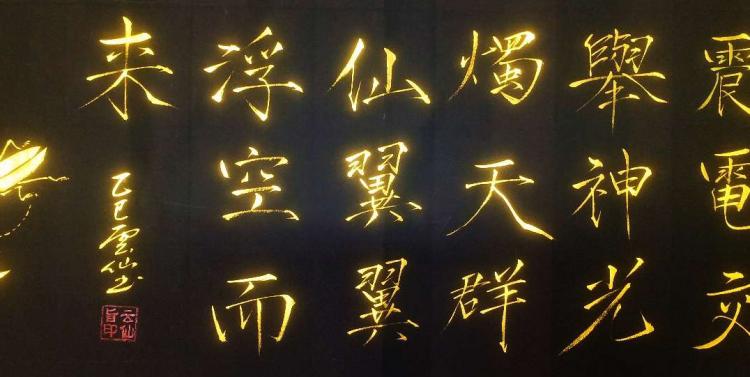 震電交
舉神光
燭天群
仙翼翼
浮空而
来
乙巳雲仙书
云仙
旨印